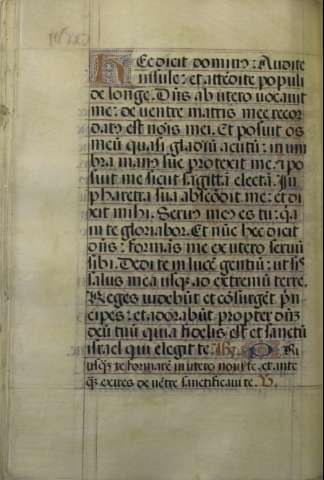 Hec dicit dominus: Audite
insule: et attẽdite populi
de longe. Dñs ab utero vocavit
me: de ventre matris mee recor
datꝰ est noĩs mei. Et posuit os
meũ quasi gladiũ acutũ: in um
bra manꝰ sue protexit me: ⁊ po
suit me sicut sagittã electã. In
pharetra sua abscõdit me: et di
xit mihi. Servꝰ meꝰ es tu: q̃a
in te gloriabor. Et nũc hec dicit
dñs: formãs me ex utero servũ
sibi. Dedi te in lucẽ gentiũ: ut sis
salus mea usq̃ ad extremũ terre.
Reges videbũt et cõsurgẽt prĩ
cipes: et adorabũt propter dñʒ
deũ tuũ quia fidelis est et sanctũ
israel qui elegit te. Pri
usq̃ʒ te formarẽ in utero novi te. et ante
q̃ʒ exires de vẽtre sanctificavi te. V.